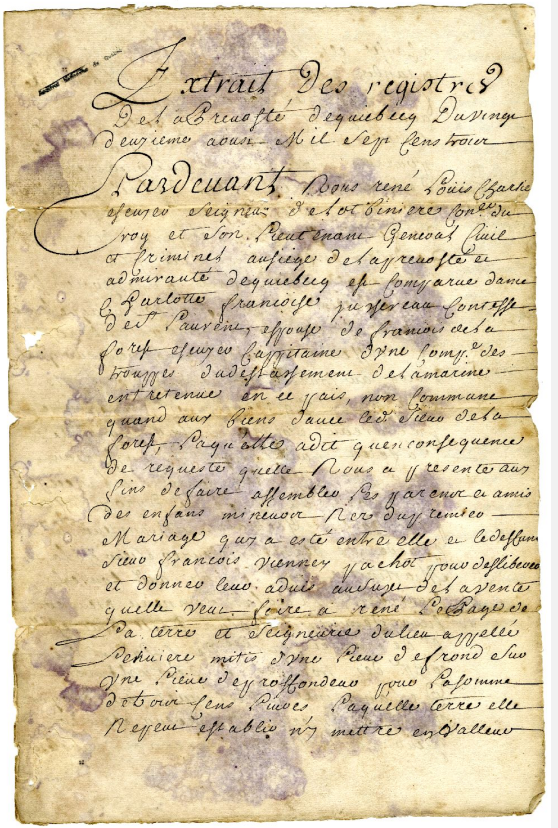 Extrait Des registres
De la Prevosté de quiebecq Du vingt
deuzieme aoust Mil Sept Cens trois
Pardevant Nous rené Louis Chartier
escuyer Seigneur de lotbiniere Conser du
Roy et Son Lieutenant General Civil
et Criminel au siege de la prevosté et
admirauté de quiebecq est Comparue dame
Charlotte francoise juschereau Contesse
de St Laurent, espouse de francois de la
forest escuyer Cappitaine d'une Compe des
trouppes du destaschement de la marine
entretenue en ce pais, non Commune
quand aux biens d'avec led. Sieur de la
forest, Laquelle a dit qu'en consequence
de requeste quelle Nous a presenté aux
fins de faire assembler Les parens et amis
des enfans mineurs Nez du premier
Mariage qu'y a esté entre elle et le deffunt
Sieur francois Vienney pachot pour deliberer
et donner leur advis au sujet de la vente
quelle veut faire a rené Le page de
La terre et Seigneurie du lieu appellée
mitis d'une Lieue de frond Sur
Une Lieue de proffondeur pour La Somme
de Cens Livres Laquelle terre elle
Ne peut establir n'y mettre en Valleur